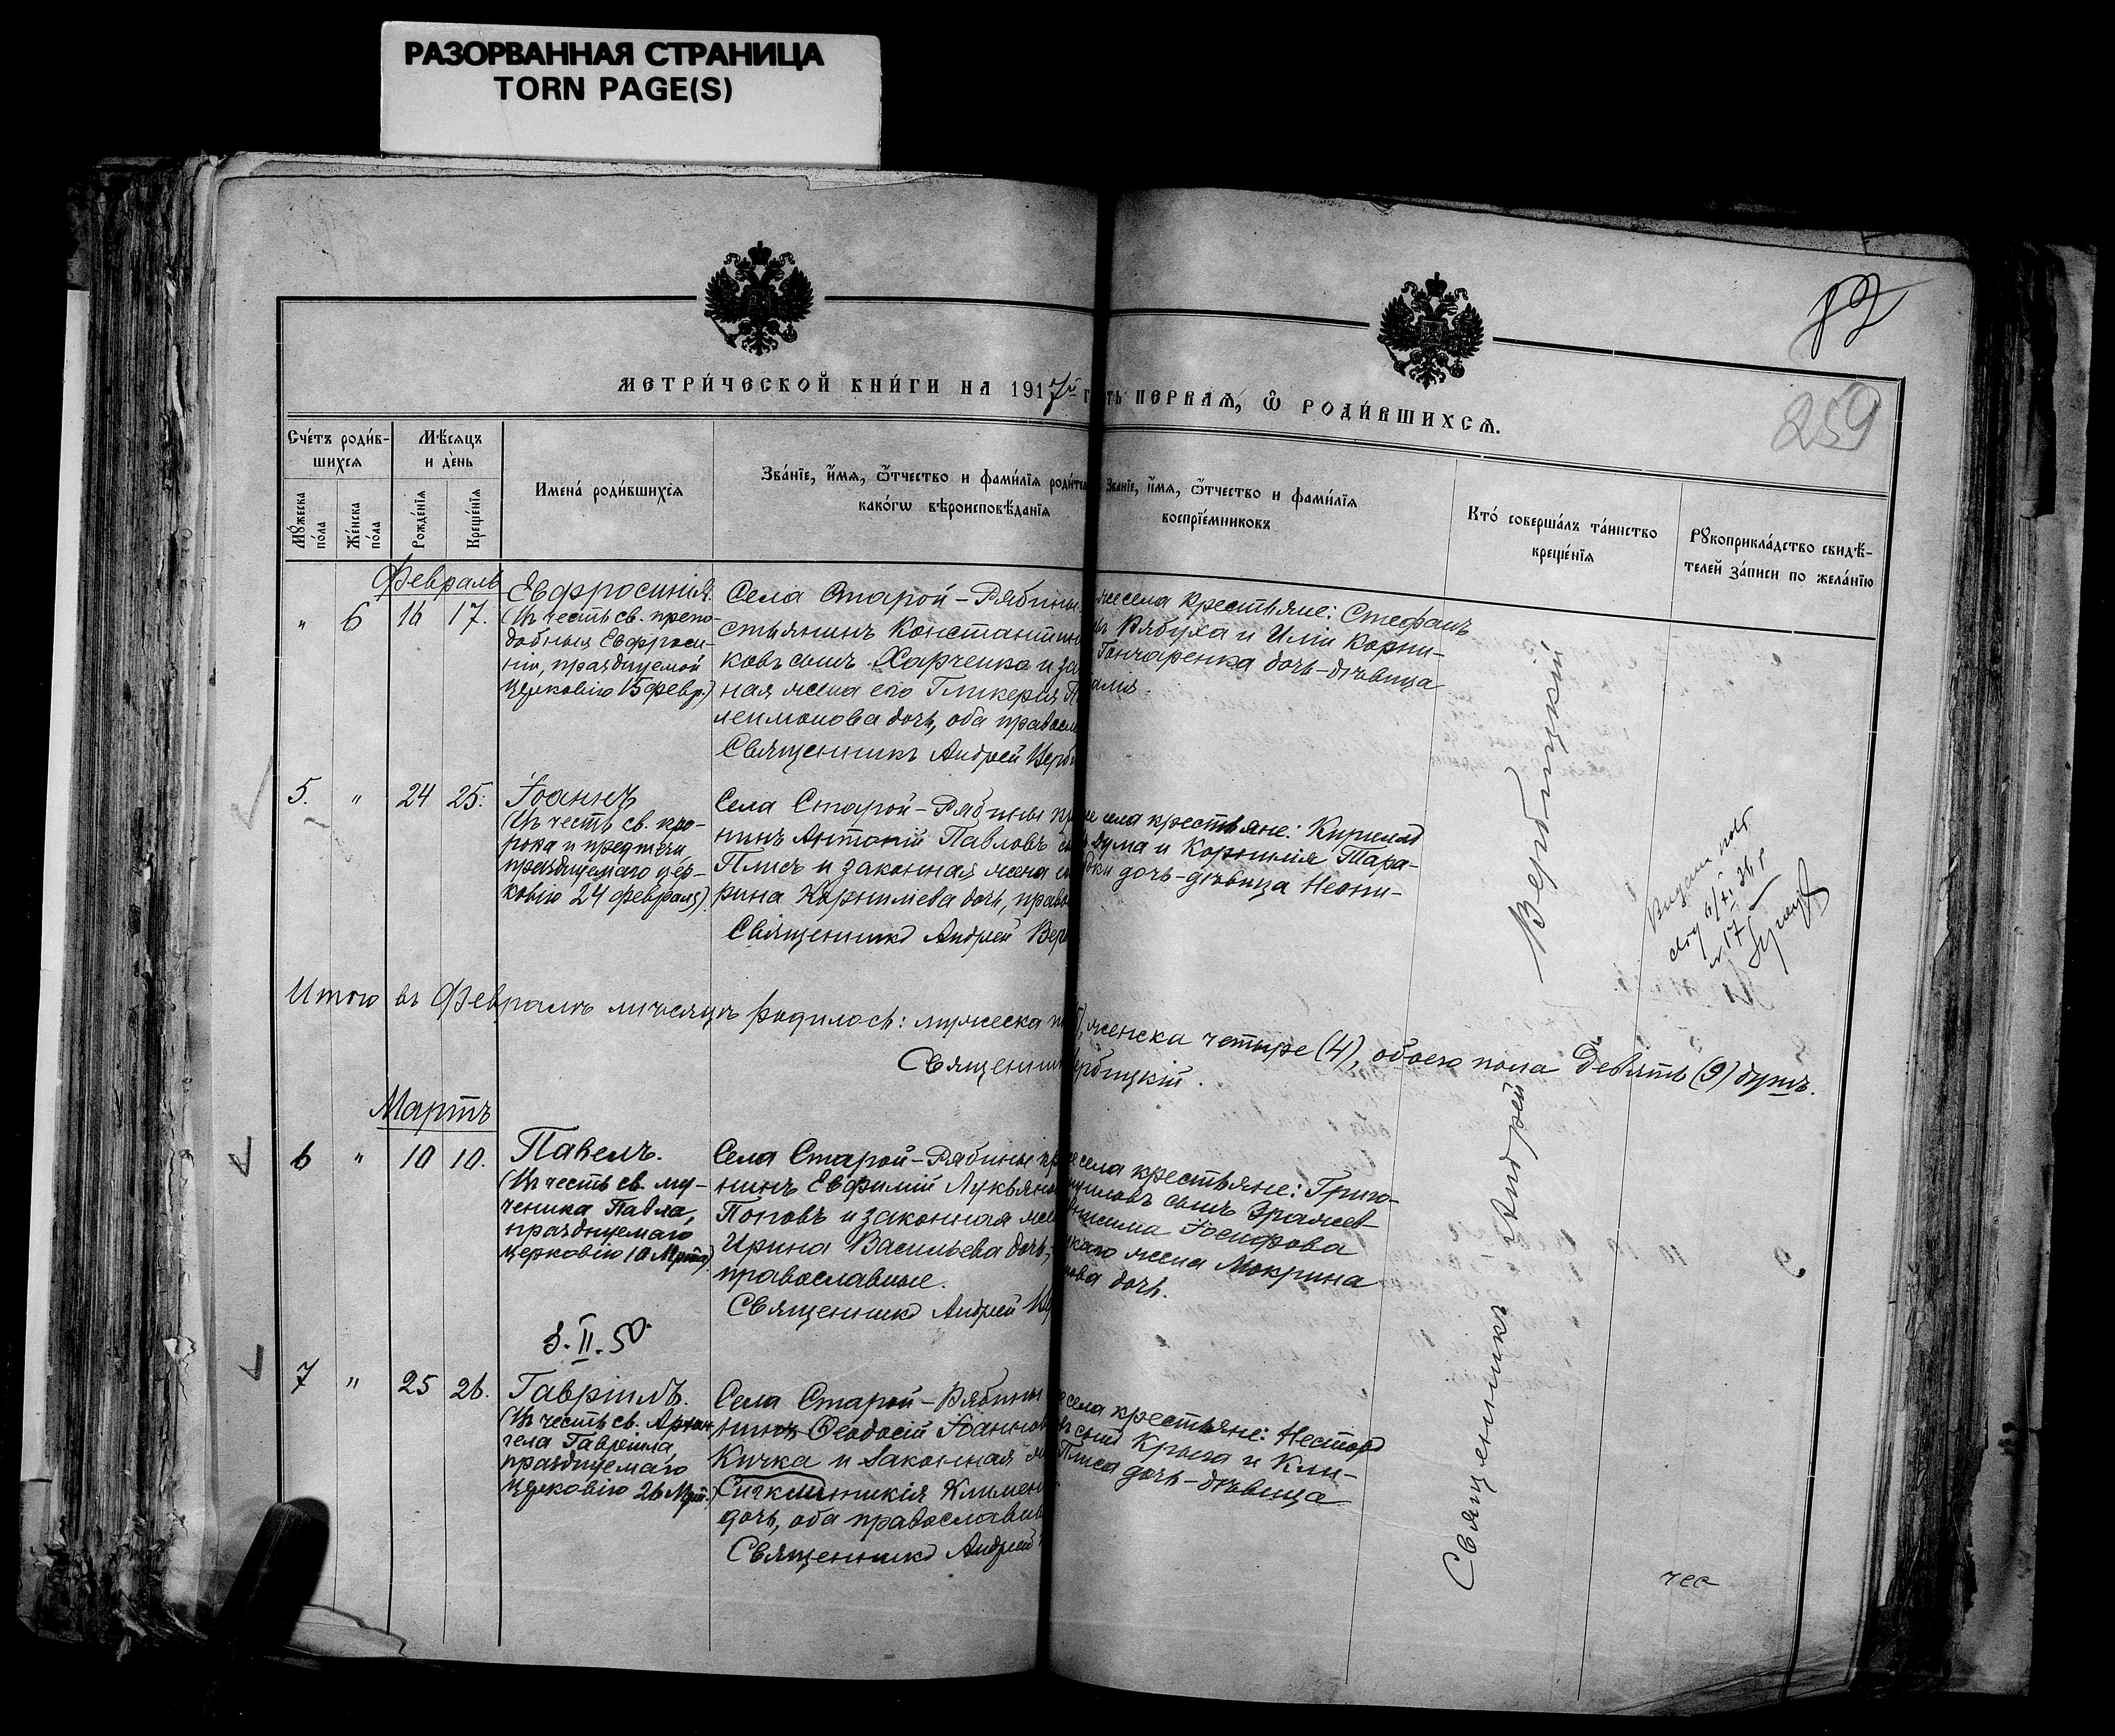 РАЗОРВАННАЯ СТРАНИЦА
TORN PAGE(S)
82
259
МЕТРИ́ЧЕСКОЙ КНИ́ГИ НА 1917й Г
ТЬ ПЕРВАѦ, Ѽ РОДИ́ВШИХСѦ.
Сче́тъ роди́в-
шихсѧ
Мѣ́сѧцъ
и де́нь
Мꙋ́жеска по́ла
Же́нска по́ла
Рожде́нїѧ
Креще́нїѧ
Имена́ роди́вшихсѧ
Зва́нїе, и́мѧ, ѻ҆́тчество и фами́лїѧ роди́те
како́гѡ вѣроисповѣ́данїѧ
Зва́нїе, и́мѧ, ѻ҆́тчество и фами́лїѧ
воспрїе́мниковъ
Кто́ соверша́лъ та́инство
креще́нїѧ
Рꙋкоприкла́дство свидѣ́-
телей за́писи по жела́нїю
Февраль
" 6 16 17.
Евфросинія.
(Въ честь св. препо-
добныя Евфроси-
ніи, празднуемой
церковію 15 февр.)
Села Старой-Рябины
стьянинъ Константин
ковъ сынъ Харченко и за
ная жена его Гликерія П
леимонова дочь, оба правосл
Священникъ Андрей Верб
же села крестьяне: Стефанъ
въ Рябуха и Иліи Корни-
Гончаренка дочь-дѣвица
алія.
5. " 24 25.
Іоаннъ
(Въ честь св. про-
рока и предтечи,
празднуемаго цер-
ковію 24 февраля).
Села Старой-Рябины кр
нинъ Антоній Павловъ с
Плисъ и законная жена е
рина Корниліева дочь, право
Священникъ Андрей Вер
е села крестьяне: Кириллъ
Дума и Корнилія Тара-
дочь-дѣвица Неони-
Итого въ Февралѣ мѣсяцѣ родилось: мужеска п
, женска четыре (4), обоего пола девять (9) душъ.
Священник
ербицкій.
Мартъ
6 " 10 10.
Павелъ.
(Въ честь св. му-
ченика Павла,
празднуемаго
церковію 10 Марта)
Села Старой-Рябины кр
нинъ Евфимій Лукьянов
Поповъ и законная же
Ирина Васильева дочь,
православные.
Священникъ Андрей Ве
е села крестьяне: Григо-
сынъ
Іосифова
жена Мокрина
ова дочь.
8.II.50
7 " 25 26.
Гавріилъ.
(Въ честь св. Архан
гела Гавріила,
празднуемаго
церковію 26 Март.)
Села Старой-Рябины
нинъ Ѳеодосій Іоаннов
Кичка и законная ж
Синклитикія Климен
дочь, оба православн
Священникъ Андрей
села крестьяне: Несторъ
въ сынъ Крыга и Кли-
Плиса дочь-дѣвица
Священникъ Андрей Вербицкій